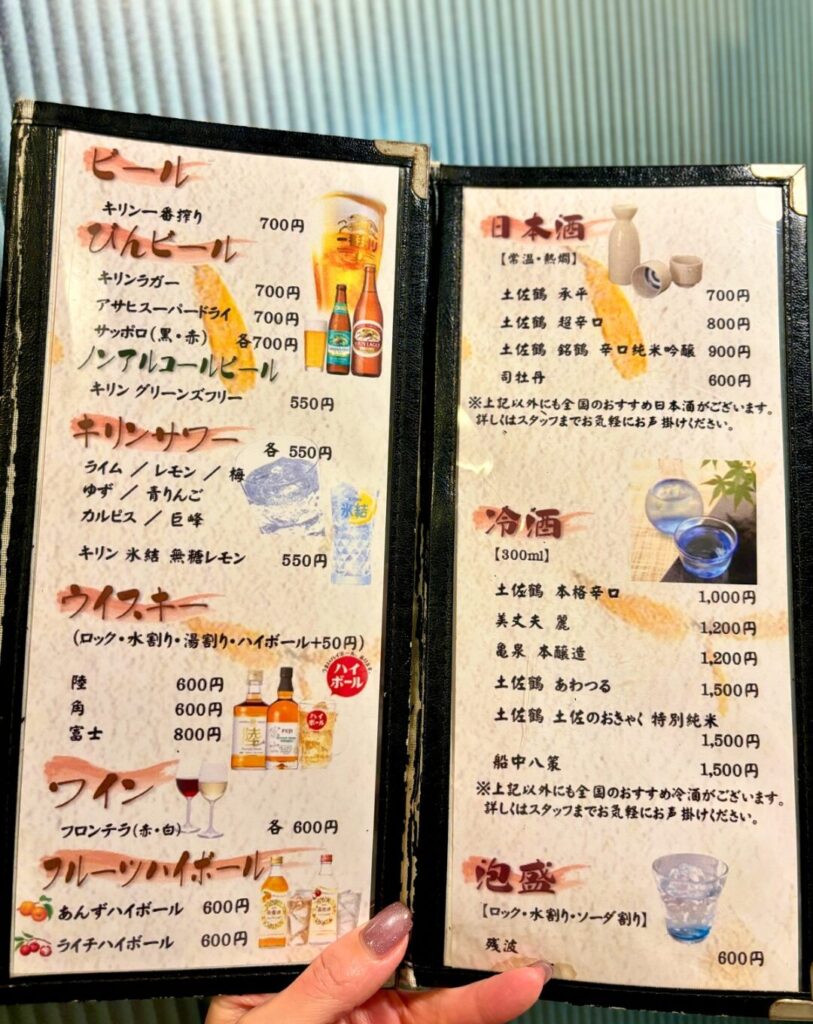 ビール
キリン一番搾り 700円
びんビール
キリンラガー 700円
アサヒスーパードライ 700円
サッポロ(黒・赤) 各700円
ノンアルコールビール
キリン グリーンズフリー 550円
キリンサワー 各 550円
ライム / レモン / 梅
ゆず / 青りんご
カルピス / 巨峰
キリン 氷結 無糖レモン 550円
氷結
ウイスキー
(ロック・水割り・湯割り・ハイボール+50円)
ハイ
ボール
陸 600円
角 600円
富士 800円
陸
FUJI
ハイ
ボール
ワイン
フロンテラ(赤・白) 各 600円
フルーツハイボール
あんずハイボール 600円
ライチハイボール 600円
日本酒
【常温・熱燗】
土佐鶴 承平 700円
土佐鶴 超辛口 800円
土佐鶴 銘鶴 辛口純米吟醸 900円
司牡丹 600円
※上記以外にも全国のおすすめ日本酒がございます。
詳しくはスタッフまでお気軽にお声掛けください。
冷酒
【300ml】
土佐鶴 本格辛口 1,000円
美丈夫 麗 1,200円
亀泉 本醸造 1,200円
土佐鶴 あわつる 1,500円
土佐鶴 土佐のおきゃく 特別純米
1,500円
船中八策 1,500円
※上記以外にも全国のおすすめ冷酒がございます。
詳しくはスタッフまでお気軽にお声掛けください。
泡盛
【ロック・水割り・ソーダ割り】
残波 600円